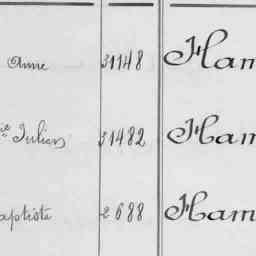 Anne 31148 Ham
Julien 31482 Ham
aptiste 2688 Ham